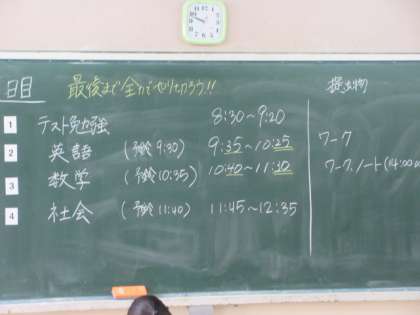 日目 最後まで全力でやりきろう!! 提出物
1 テスト勉強 8:30～9:20
2 英語 (予鈴 9:30) 9:35～10:25 ワーク
3 数学 (予鈴 10:35) 10:40～11:30 ワーク、ノート(14:00
4 社会 (予鈴 11:40) 11:45～12:35